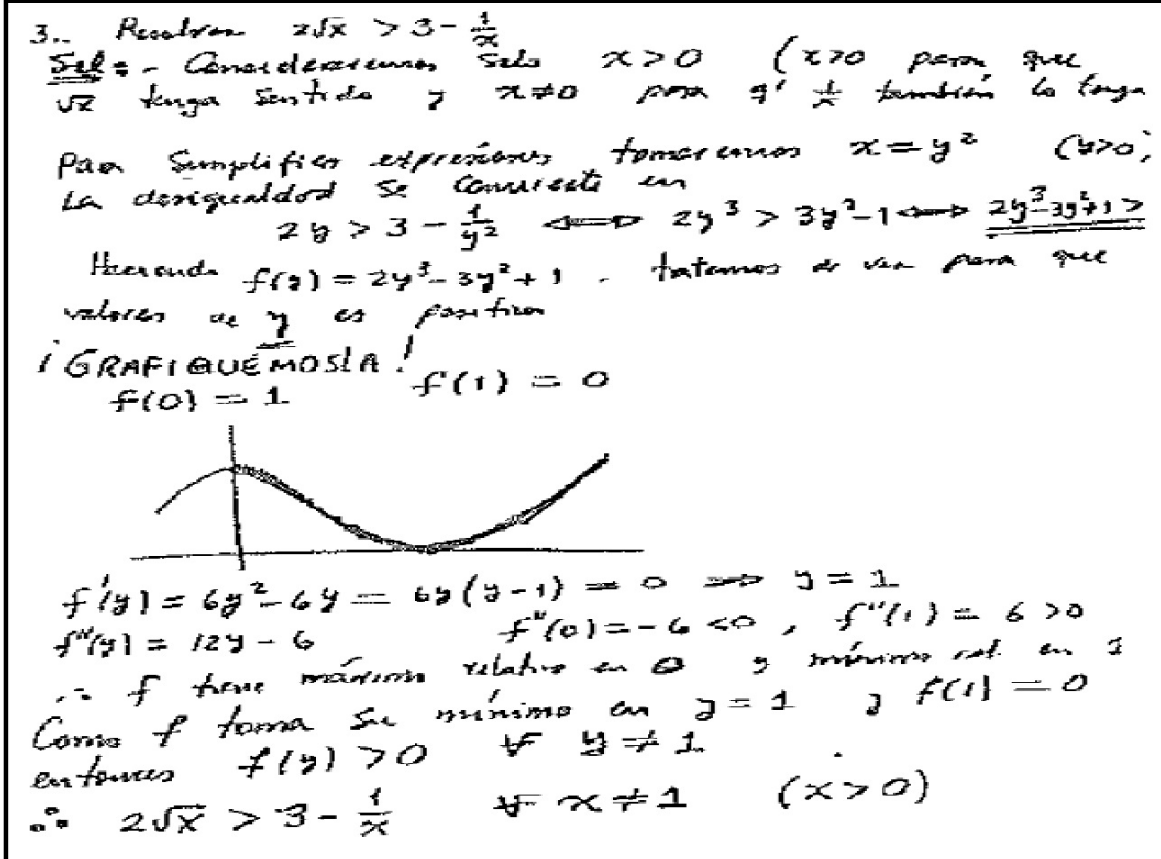 3.. Resolver 2√x > 3 - 1/x
Sol: - Consideraremos solo x > 0 (x>0 para que
√x tenga sentido y x≠0 para q' 1/x también lo tenga
Para Simplificar expresiones tomaremos x = y² (y>0;
La desigualdad se convierte en
2y > 3 - 1/y² ⟺ 2y³ > 3y² - 1 ⟺ 2y³-3y²+1>
Haciendo f(y) = 2y³ - 3y² + 1 . tratemos de ver para que
valores de y es positiva
¡GRAFIQUÉMOSLA!
f(0) = 1 f(1) = 0
f'(y) = 6y² - 6y = 6y(y-1) = 0 ⟹ y = 1
f''(y) = 12y - 6 f''(0) = -6 <0 , f''(1) = 6 >0
∴ f tiene máximo relativo en 0 y mínimo rel. en 1
Como f toma su mínimo en y = 1 y f(1) = 0
entonces f(y) > 0 ∀ y ≠ 1
∴ 2√x > 3 - 1/x ∀ x ≠ 1 (x > 0)